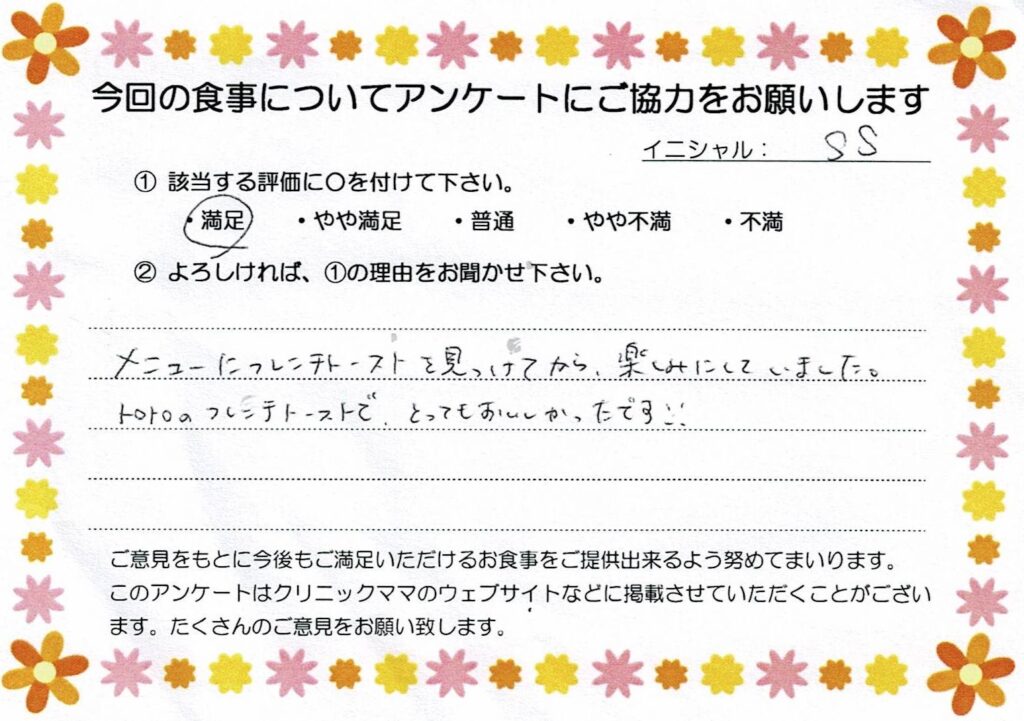 今回の食事についてアンケートにご協力をお願いします
イニシャル： SS
① 該当する評価に〇を付けて下さい。
・満足 ・やや満足 ・普通 ・やや不満 ・不満
② よろしければ、①の理由をお聞かせ下さい。
メニューにフレンチトーストを見つけてから、楽しみにしていました。
トロトロのフレンチトーストで、とってもおいしかったです
ご意見をもとに今後もご満足いただけるお食事をご提供出来るよう努めてまいります。
このアンケートはクリニックママのウェブサイトなどに掲載させていただくことがござい
ます。たくさんのご意見をお願い致します。